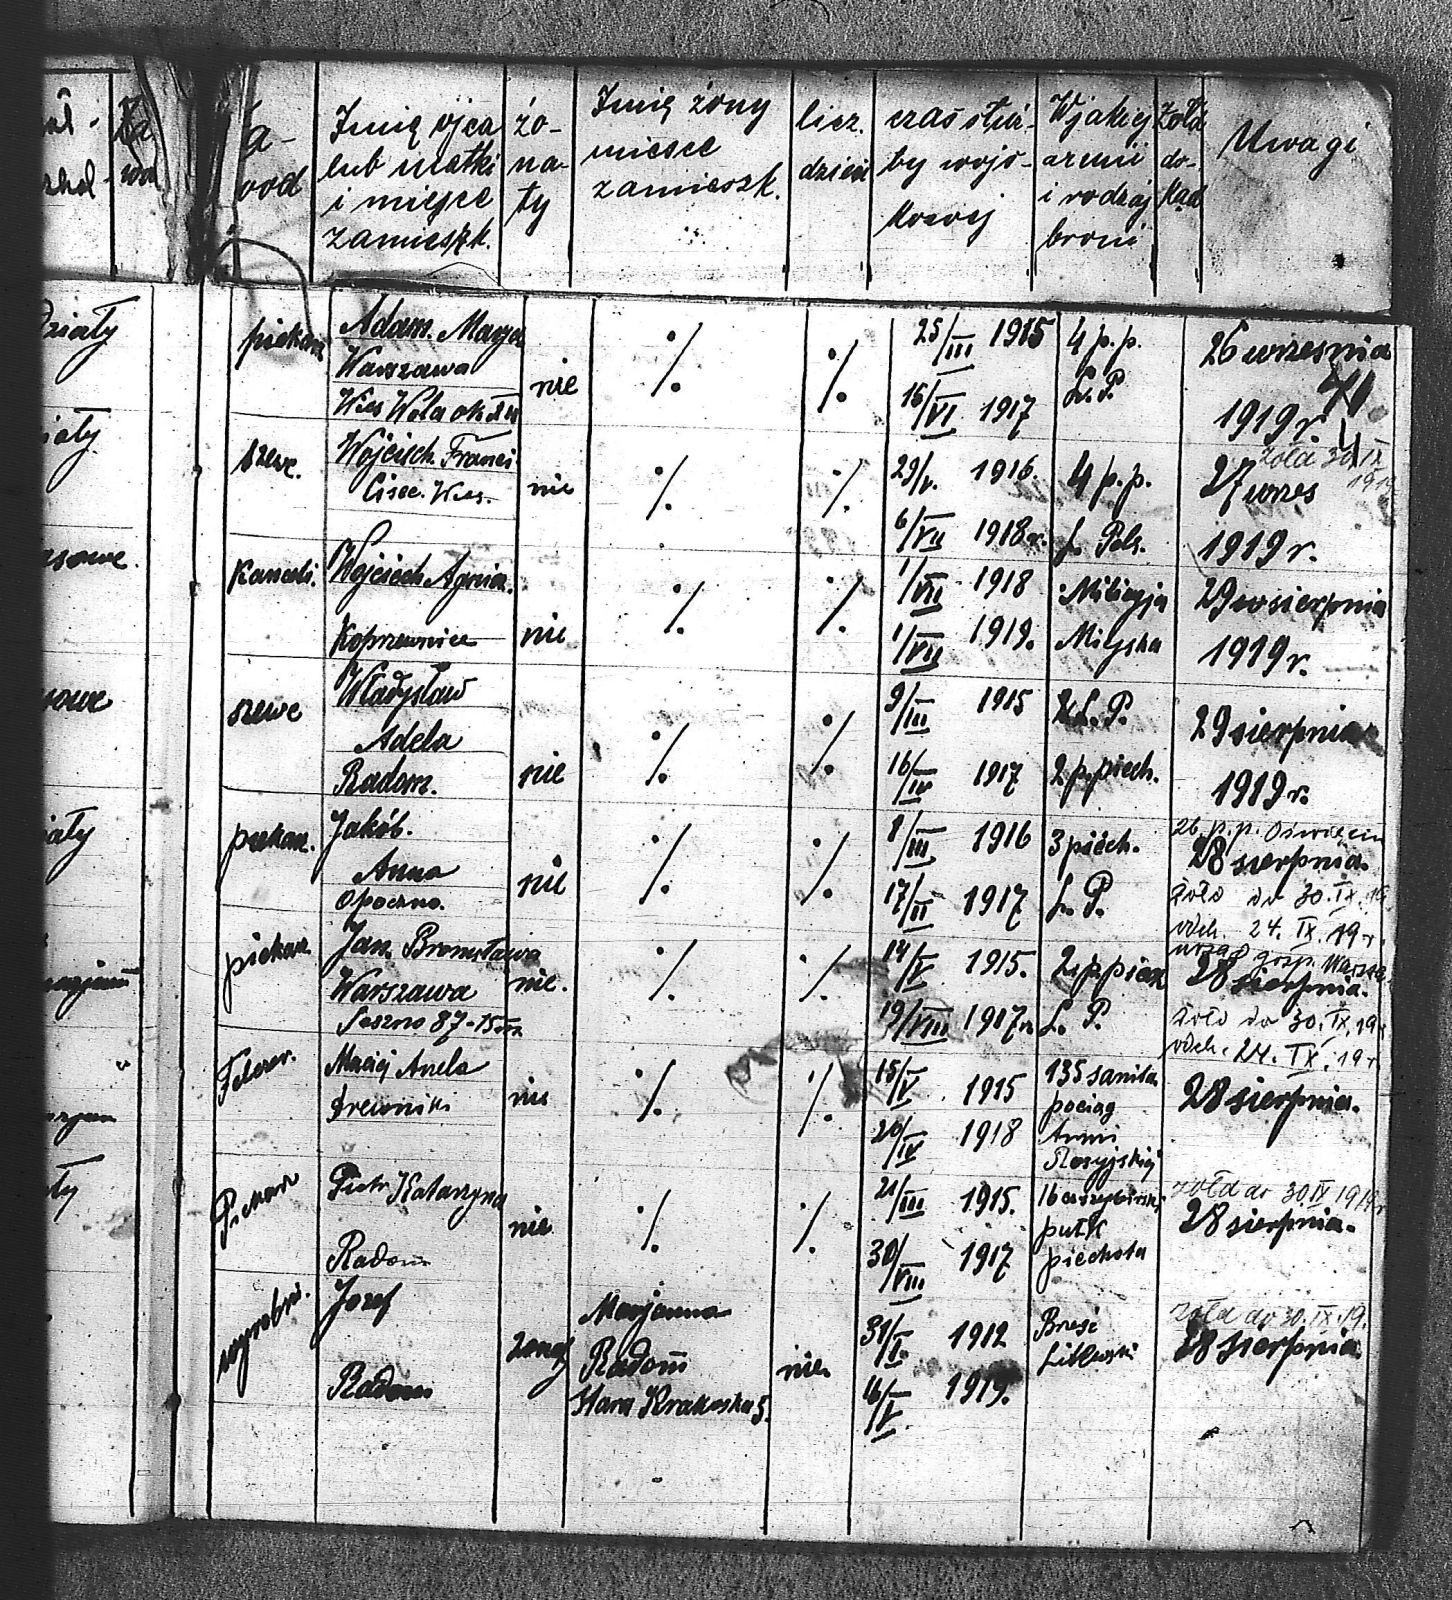 Imię ojca
lub matki
i miejsce
zamieszk.
żo-
na-
ty
Imię żony
miesce
zamieszk.
licz.
dzieci
czas słu-
by wojs-
kowej
W jakiej
armii
i rodzaj
broni
Żołd
do-
kąd
Uwagi
piekarz
Adam. Marja
Warszawa
nie
25/III 1915
16/VI 1917
4 p. p.
L. P.
26 wrzesnia
1919 r.
szewc.
Wojciech Franci
nie
29/V. 1916.
6/VII 1918 r.
4 p. p.
L. Pols.
żołd 30 IX
27 wrzes
1919 r.
Kanceli.
Wojciech
Koprzewnica
nie
1/VII 1918
1/VII 1919.
Milicyja
29 sierpnia
1919 r.
szewc
Władysław
Adela
Radom.
nie
9/III 1915
16/IV 1917
L. P.
2 p. piech.
29 sierpnia
1919 r.
piekarz.
Jakób.
Anna
Opoczno.
nie
8/III 1916
17/II 1917
3 piech.
L. P.
26 p. p. Oswięcim
28 sierpnia.
żołd do 30. IX. 19.
odch. 24. IX. 19 r.
piekarz
Jan. Bronisława
Warszawa
Leszno 87-15
nie.
14/V 1915.
19/VIII 1917 r.
2 p. piech
L. P.
urząd gosp. Warsza.
28 sierpnia.
żołd do 30. IX. 19
odch. 24. IX. 19 r.
Felczer.
Maciej Aniela
Drewniki
nie
15/V 1915
20/IV 1918
135 sanita
pociąg
Armii
Rosyjskiej
28 sierpnia.
Piekarz
Piotr Katarzyna
Radom
nie
21/III 1915.
30/VIII 1917
pułk
piechota
żołd do 30 IX 1919 r
28 sierpnia.
wyrobn.
Józef
Radom
żonaty
Marjanna
Radom
Stara Krakoska 5.
nie
31/I. 1912
16/V. 1919.
Brześć
Litewski
żołd do 30. IX. 19.
28 sierpnia